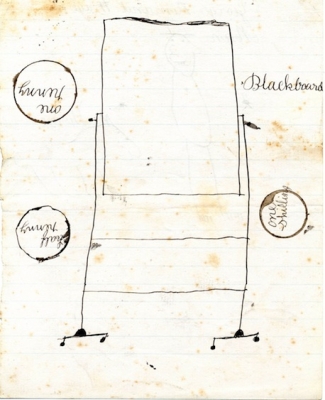 one
penny
Blackboard
half
penny
one
shilling